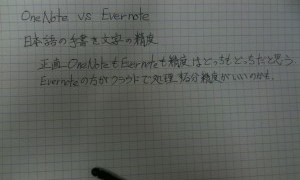 OneNote vs Evernote
日本語の手書き文字の精度
正直OneNoteもEvernoteも精度はどっちもどっちだと思う
Evernoteの方がクラウドで処理する分精度がいいのかも。